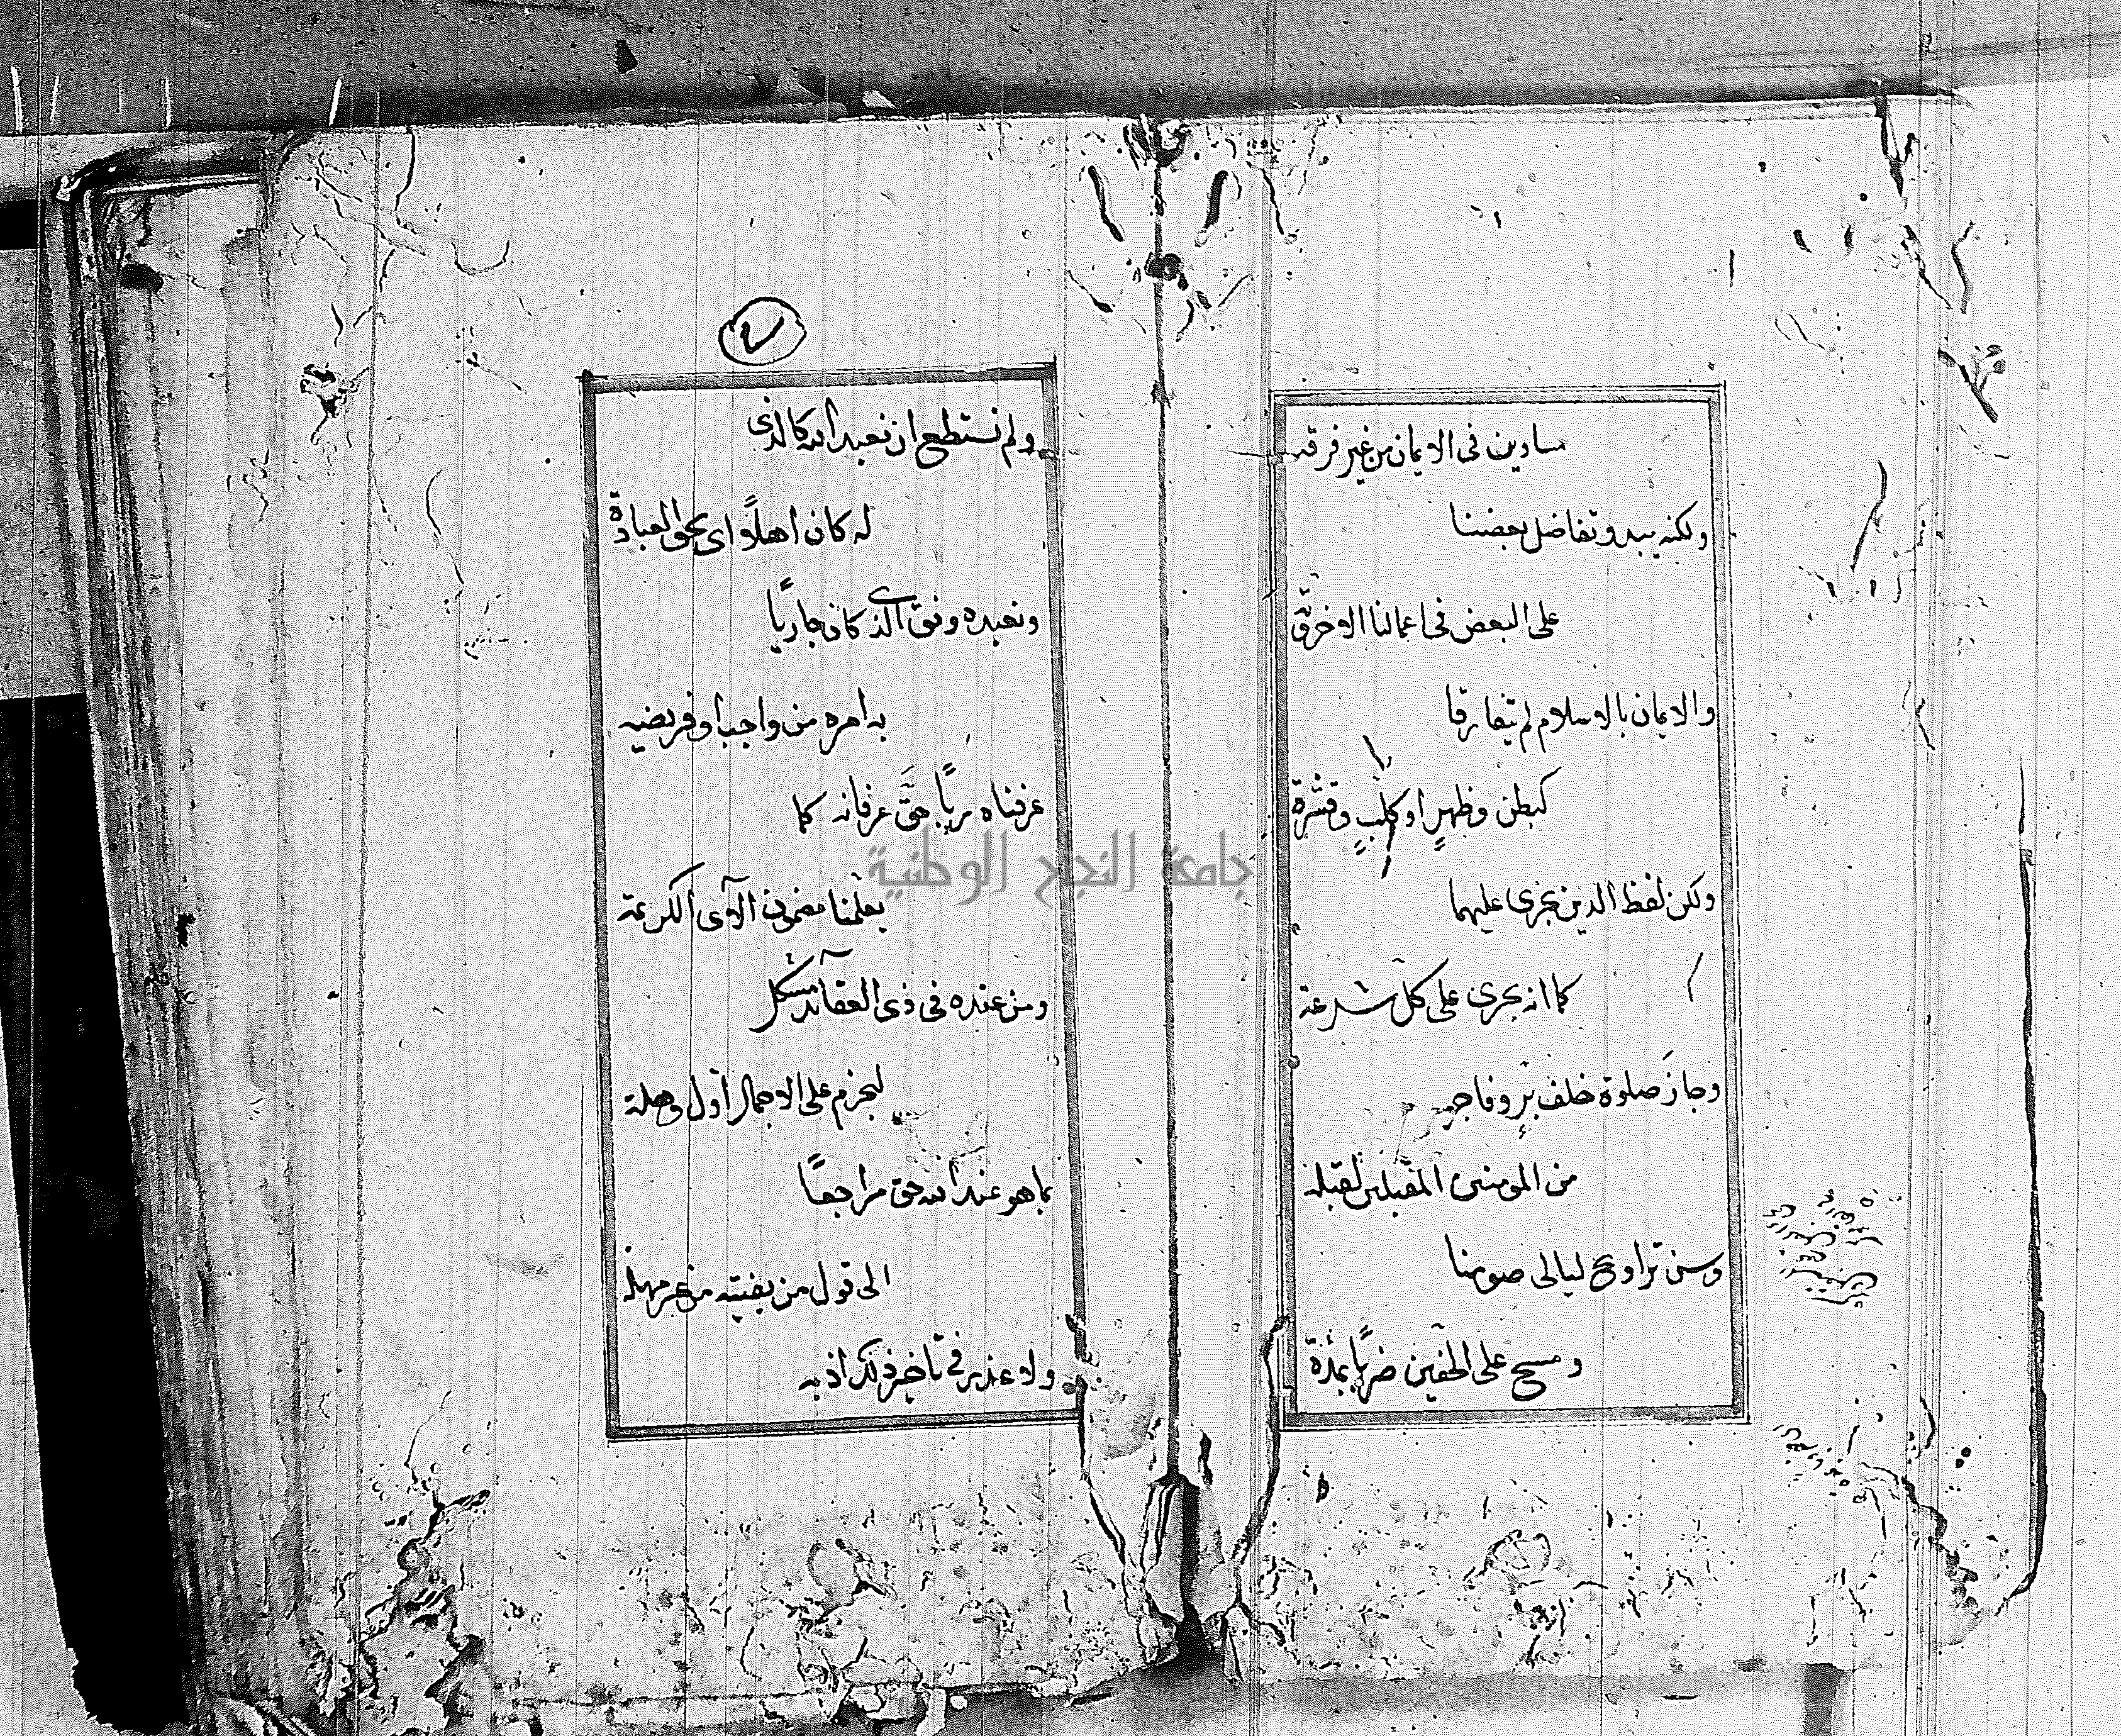 مساوين فى الايمان من غير فرقه
ولكنه يبدو تفاضل بعضنا
على البعض فى اعمالنا الاخرىة
والايمان بالاسلام لم يتفارقا
كبطن وظهرٍ او كلبٍ وقشرة
ولكن لفظ الدين يجرى عليهما
كما انه يجرى على كل شرعة
وجازَ صلوة خلف برٍ وفاجر
من المومنين المقبلين لقبلة
وسن تراويح ليالى صومنا
ومسح على الخفين ضربًا بمدة
٧
ولم نستطع ان نعبد الله كالذى
له كان اهلًا اى بحق العبادة
ونعبده وفق الذى كان جاريًا
به امره من واجب او فريضه
عرفناه ربًا حقَّ عرفانه كما
يعلمنا مضمون الآى الكريمة
ومن عنده فى ذى العقائد مشكل
ليجزم على الاجمال اول وهلة
بما هو عند الله حق مراجعًا
الى قول من يفتيه من غير مهلة
ولا عذر فى تاخير ذلك اذ به
جامعة النجاح الوطنية